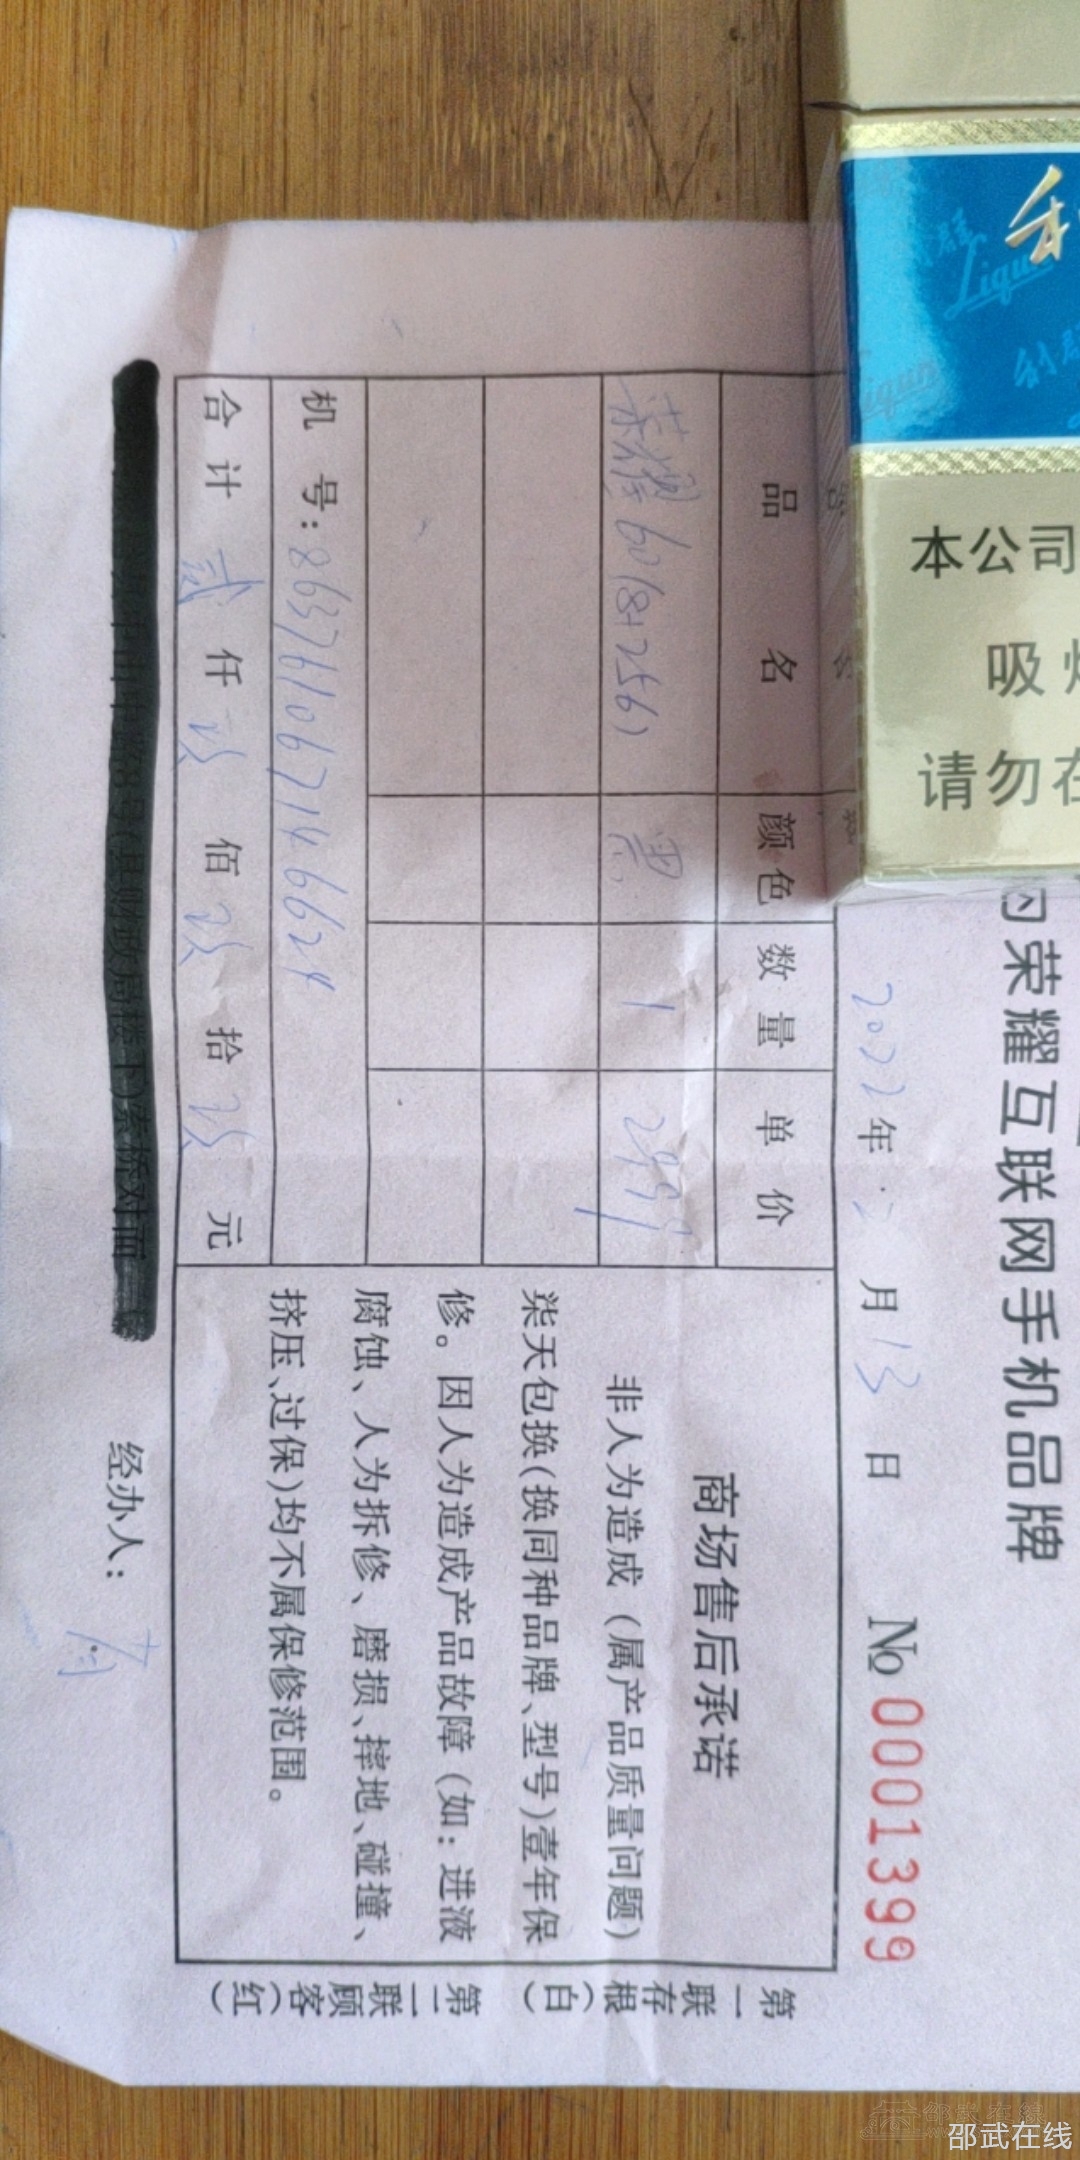 荣耀互联网手机品牌
2022年 2月13日 № 0001399
品 名 颜色 数量 单价
荣耀60(8+256) 黑 1 2999
机 号:863761067146624
合计 贰 仟 玖 佰 玖 拾 玖 元
商场售后承诺
非人为造成(属产品质量问题)
柒天包换(换同种品牌、型号)壹年保
修。因人为造成产品故障(如:进液
腐蚀、人为拆修、磨损、摔地、碰撞、
挤压、过保)均不属保修范围。
第一联存根(白) 第二联顾客(红)
号(县财政局楼下)索桥对面
经办人:
利群
Liqun
本公司
吸
请勿在
邵武在線
邵武在线